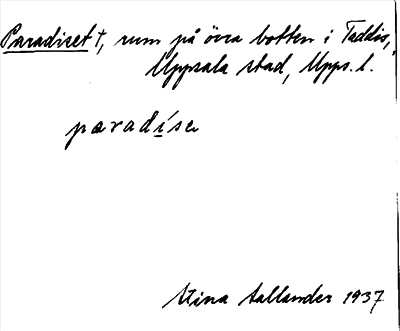 Paradiset †, rum på övra botten i Taddis,
Uppsala stad, Upps. l.
paradi̲se
Stina Hallander 1937